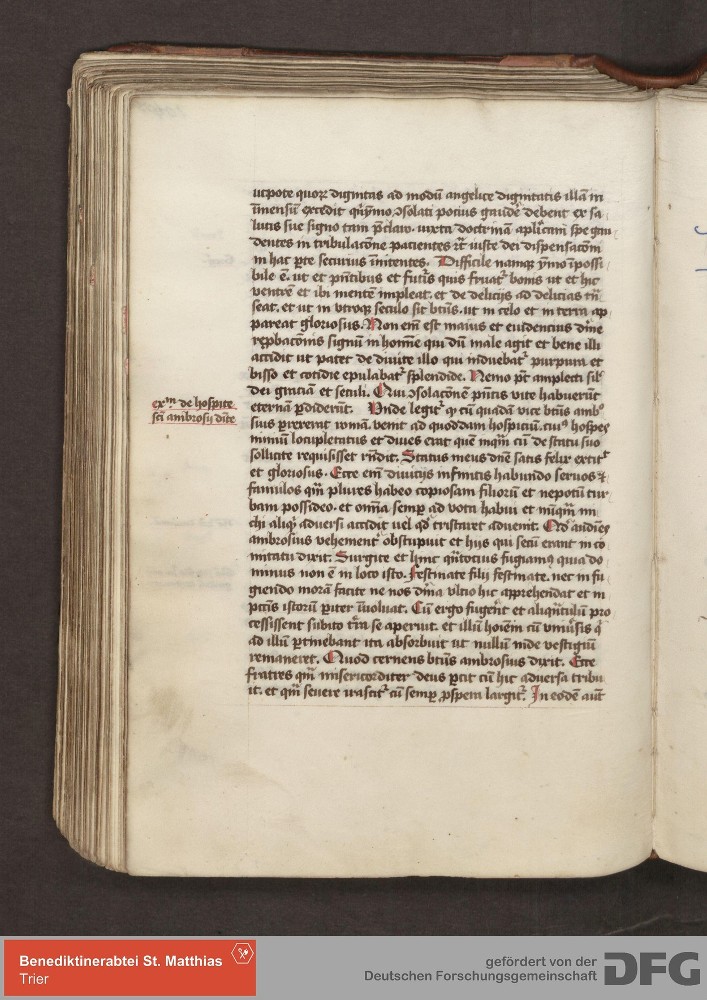 utpote quorꝝ dignitas ad modū angelice dignitatis illā in
īmensū excedit qͥnymo ꝯsolati potius gaudē debent ex sa
lutis sue signo tam p̄claro. iuxta doctrinā apl̄icam spe gau
dentes in tribulacōne pacientes ⁊c̄ iuste dei dispensacōm
in hac ꝑte securius īnitentes. Difficile namqꝫ ymo īpossi
bile ē. ut et pn̄tibus et futr̄is quis fruatͬ bonis ut et hic
ventrē et ibi mentē impleat. et de delicijs ad delicias tn̄
seat. et ut in vtroqꝫ seculo sit btūs. ut in celo et in terra ap
pareat gloriosus. Non em̄ est maius et euidencius dīne
rep̱bacōnis signū in homīe qui dū male agit et bene illi
accidit ut patet de diuite illo qui induebatͬ purpura et
bisso et cotidie epulabatͬ splendide. Nemo pt̄ amplecti silͥ
dei graciā et seculi. Qui ꝯsolacōnē pn̄tis vite habuerūt
eternā ꝑdiderūt. Vnde legitͬ qͥ cū quadā vice btūs ambͦ
sius ꝑrexerat romā. venit ad quoddam hospiciū. cuiꝰ hospes
nimiū locupletatus et diues erat quē mqͫ cū de statu suo
sollicite requisisset rn̄dit. Status meus dn̄e satis felix extitͭ
et gloriosus. Ecce em̄ diuicijs infinitis habundo seruos ⁊
famulos qͫ plures habeo copiosam filiorū et nepotū tur
bam possideo. et om̄ia semꝑ ad vota habui et nūqͫ mi
chi aliqͥ aduersi accidit uel qͩ tristaret aduenit. Qͩ andiēs
ambrosius vehementͬ obstupuit et hijs qui secū erant in co
mitatu dixit. Surgite et hinc qn̄tocius fugiamꝯ quia do
minus non ē in loco isto. festinate filij festinate. nec in fu
giendo morā facite ne nos diīa vltio hic apprehendat et in
pctīs istorū ꝑiter īuoluat. Cū ergo fugerēt et aliqn̄tulū pro
cessissent subito tr̄ra se aperuit. et illū hoiēm cū vniūsis qͥ
ad illū ꝑtinebant ita absorbuit ut nullū inde vestigiū
remaneret. Quod cernens btūs ambrosius dixit. Ecce
fratres qͫ misericorditer deus ꝑcit cū hic aduersa tribu
it. et qͫ seuere irascitͬ cū semꝑ ꝓspera largitͬ. In eodē aūt
exᵐ de hospite
sci ambrosij dite
Benediktinerabtei St. Matthias
Trier
gefördert von der
Deutschen Forschungsgemeinschaft
DFG